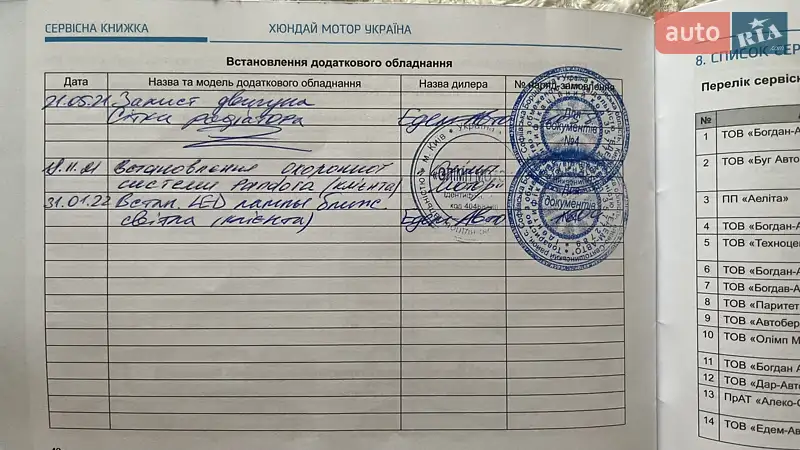 СЕРВІСНА КНИЖКА
ХЮНДАЙ МОТОР УКРАЇНА
Встановлення додаткового обладнання
Дата
Назва та модель додаткового обладнання
Назва дилера
№ наряд-замовлення
21.05.21 Захист двигуна Едем Авто
Сітки радіатора
встановлення охоронної
системи Pandora (клієнта)
31.01.22 Встан. LED лампы ближ.
світла (клієнта) Едем Авто
м. Київ * Україна
Для документів №4
auto RIA.com
8. СПИСОК СЕР
Перелік сервіс
№
1 ТОВ «Богдан-А
2 ТОВ «Буг Авто
3 ПП «Аеліта»
4 ТОВ «Богдан-А
5 ТОВ «Техноцен
6 ТОВ «Богдан-А
7 ТОВ «Богдав-А
8 ТОВ «Паритет
9 ТОВ «Автобер
10 ТОВ «Олімп М
11 ТОВ «Богдан А
12 ТОВ «Дар-Авто
13 ПрАТ «Алеко-С
14 ТОВ «Едем-Ав